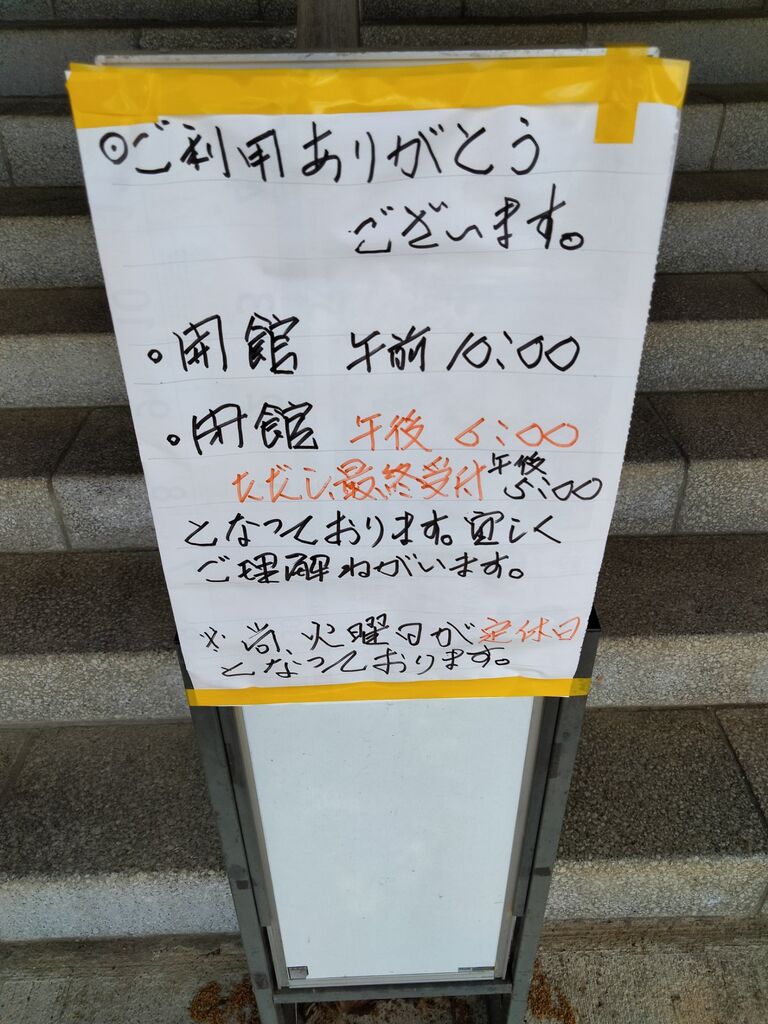 ⊙ご利用ありがとう
ございます。
。開館 午前 10:00
。閉館 午後 6:00
ただし、最終受付 午後 5:00
となっております。宜しく
ご理解ねがいます。
※尚、火曜日が定休日
となっております。